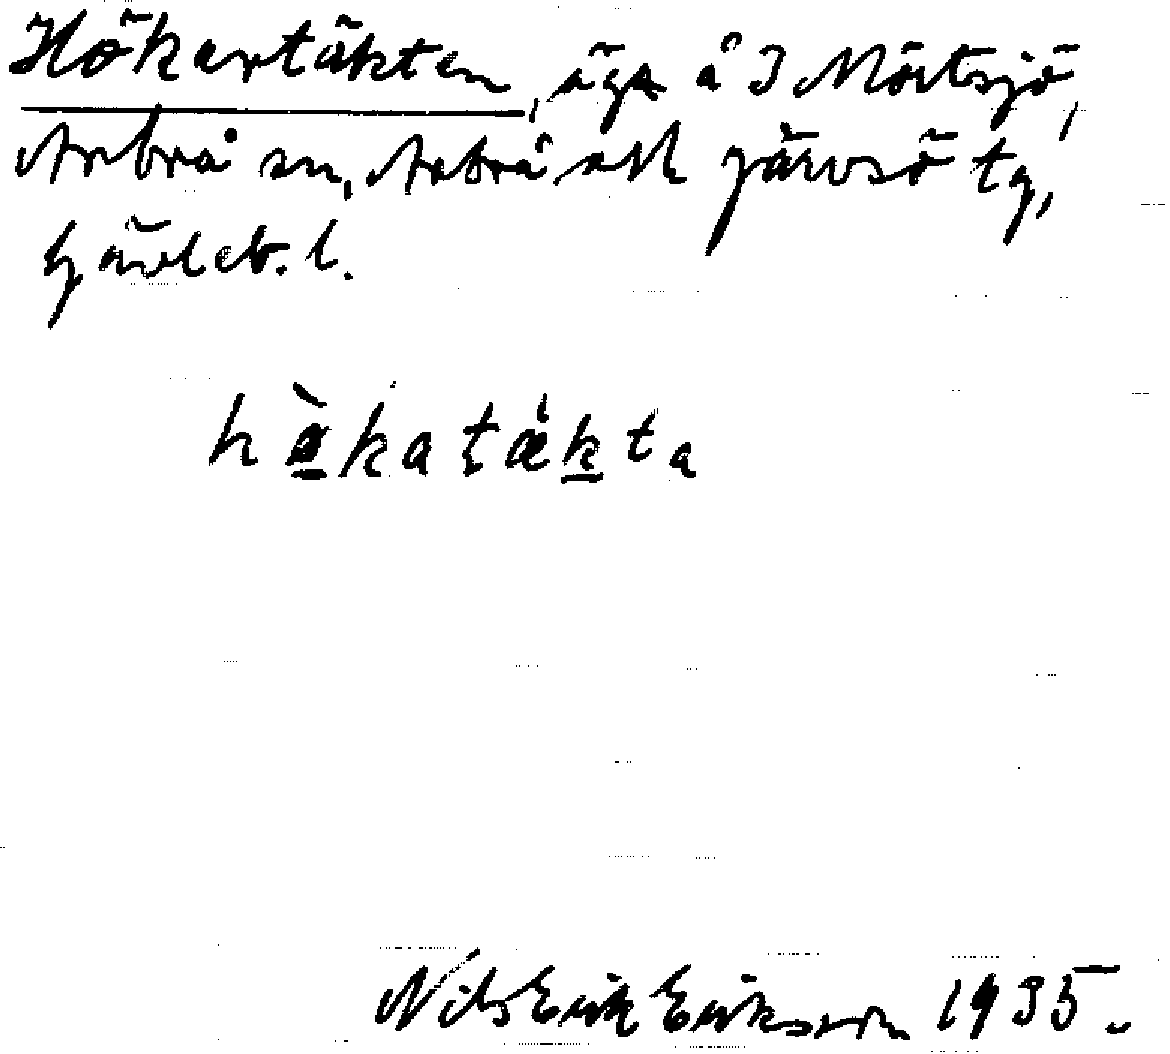 Hökartäkten, äga å 3 Mörtsjö,
Arbrå sn, Arbrå och Järvsö tg,
Gävleb. l.
hàkatǽkta
Nils Erik Eriksson 1935.